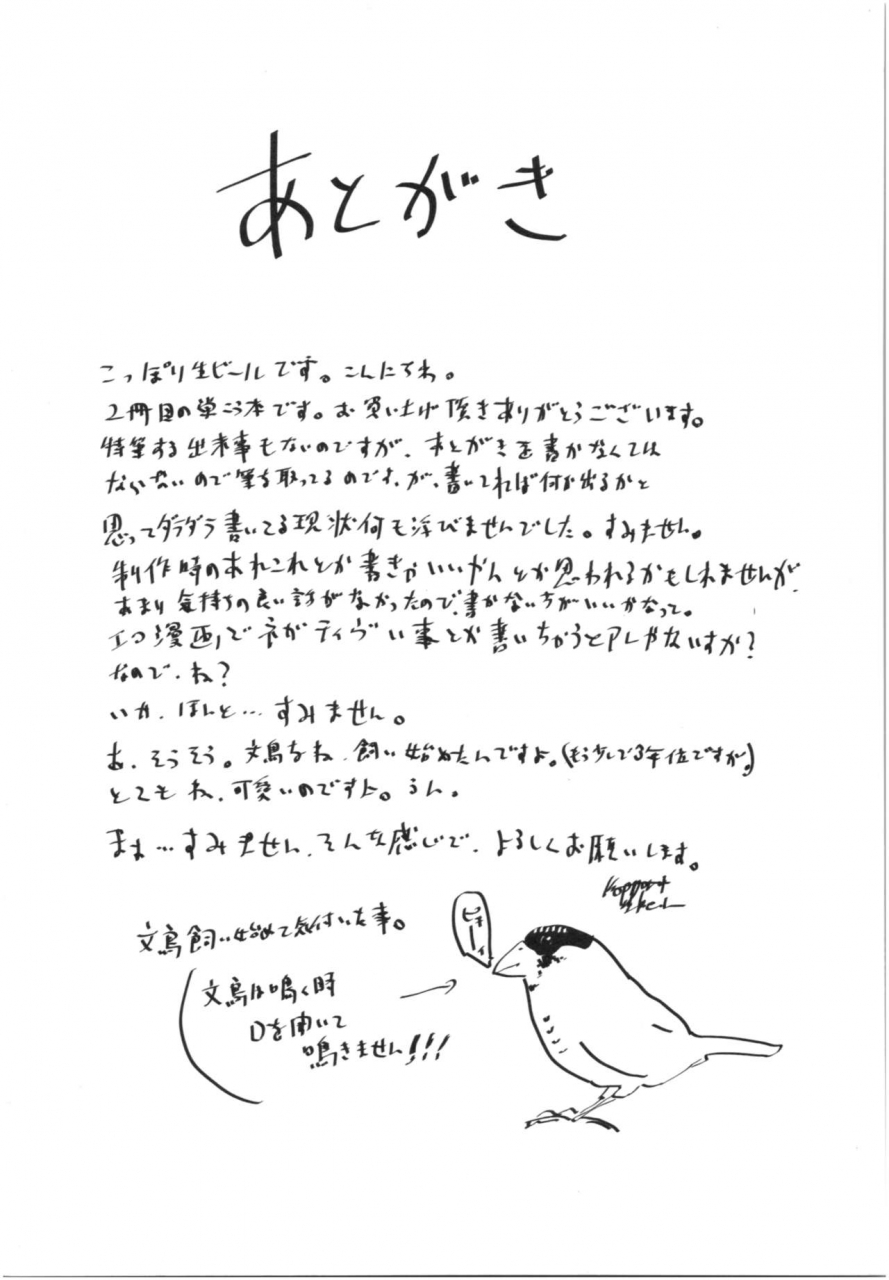 あとがき
こっぽり生ビールです。こんにちわ。
2冊目の単こう本です。お買い上げ頂きありがとうございます。
特筆する出来事もないのですが、あとがきを書かなくては
ならないので筆を取ってるのです、が、書いてれば何か出るかと
思ってダラダラ書いてる現状何も浮びませんでした。すみません。
制作時のあれこれとか書きゃいいやんとか思われるかもしれませんが、
あまり気持ちの良い話がなかったので、書かない方がいいかなって。
エロ漫画でネガティヴい事とか書いちゃうとアレじゃないすか?
なので、ね?
いや、ほんと…すみません。
あ、そうそう。文鳥をね、飼い始めたんですよ。(もう少しで3年位ですが。)
とてもね、可愛いのですよ。うん。
まぁ…すみません、そんな感じで、よろしくお願いします。
文鳥飼い始めて気付いた事。
ピューイ
文鳥は鳴く時
口を開いて
鳴きません!!!